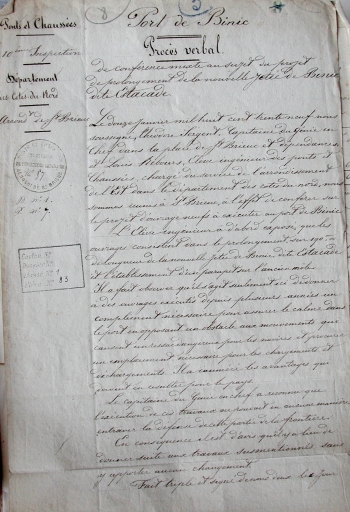 8
5
Ponts et Chaussées
Port de Binic
10ème Inspection
Procès verbal
Département
des Côtes du Nord
Arrond. de St Brieuc
de conférence mixte au sujet du projet
de prolongement de la nouvelle Jetée de Binic
dite Estacade
Le douze janvier mil huit cent trente neuf nous
soussignés, Théodore Sergent, Capitaine du Génie en
Chef dans la place de St Brieuc et dépendances
et Louis Élève ingénieur des ponts et
chaussées, chargé du service de l'arrondissement
de l'Est dans le département des cotes du nord, nous
sommes réunis à St Brieuc, à l'effet de conférer sur
le projet d'ouvrage neufs à exécuter au port de Binic
L'Élève ingénieur a d'abord exposé, que les
ouvrages consistent dans le prolongement sur
de longueur de la nouvelle jetée de Binic dite Estacade
et l'établissement d'un parapet sur l'ancien môle
Il a fait observer qu'il s'agit seulement ici de donner
à des ouvrages exécutés depuis plusieurs années un
complément nécessaire pour assurer le calme dans
le port en opposant un obstacle aux mouvements qui
causent un ressac dangereux pour les navires et procurer
un emplacement nécessaire pour les chargements et
déchargements. Il a énuméré les avantages qui
doivent en résulter pour le pays.
Le capitaine du Génie en chef a reconnu que
l'exécution de ces travaux ne pouvait en aucune manière
entraver la défense de cette partie de la frontière.
En conséquence il est d'avis qu'il y a lieu de
donner suite aux travaux susmentionnés sans
y apporter aucun changement.
Fait triple et signé de nous deux les jour